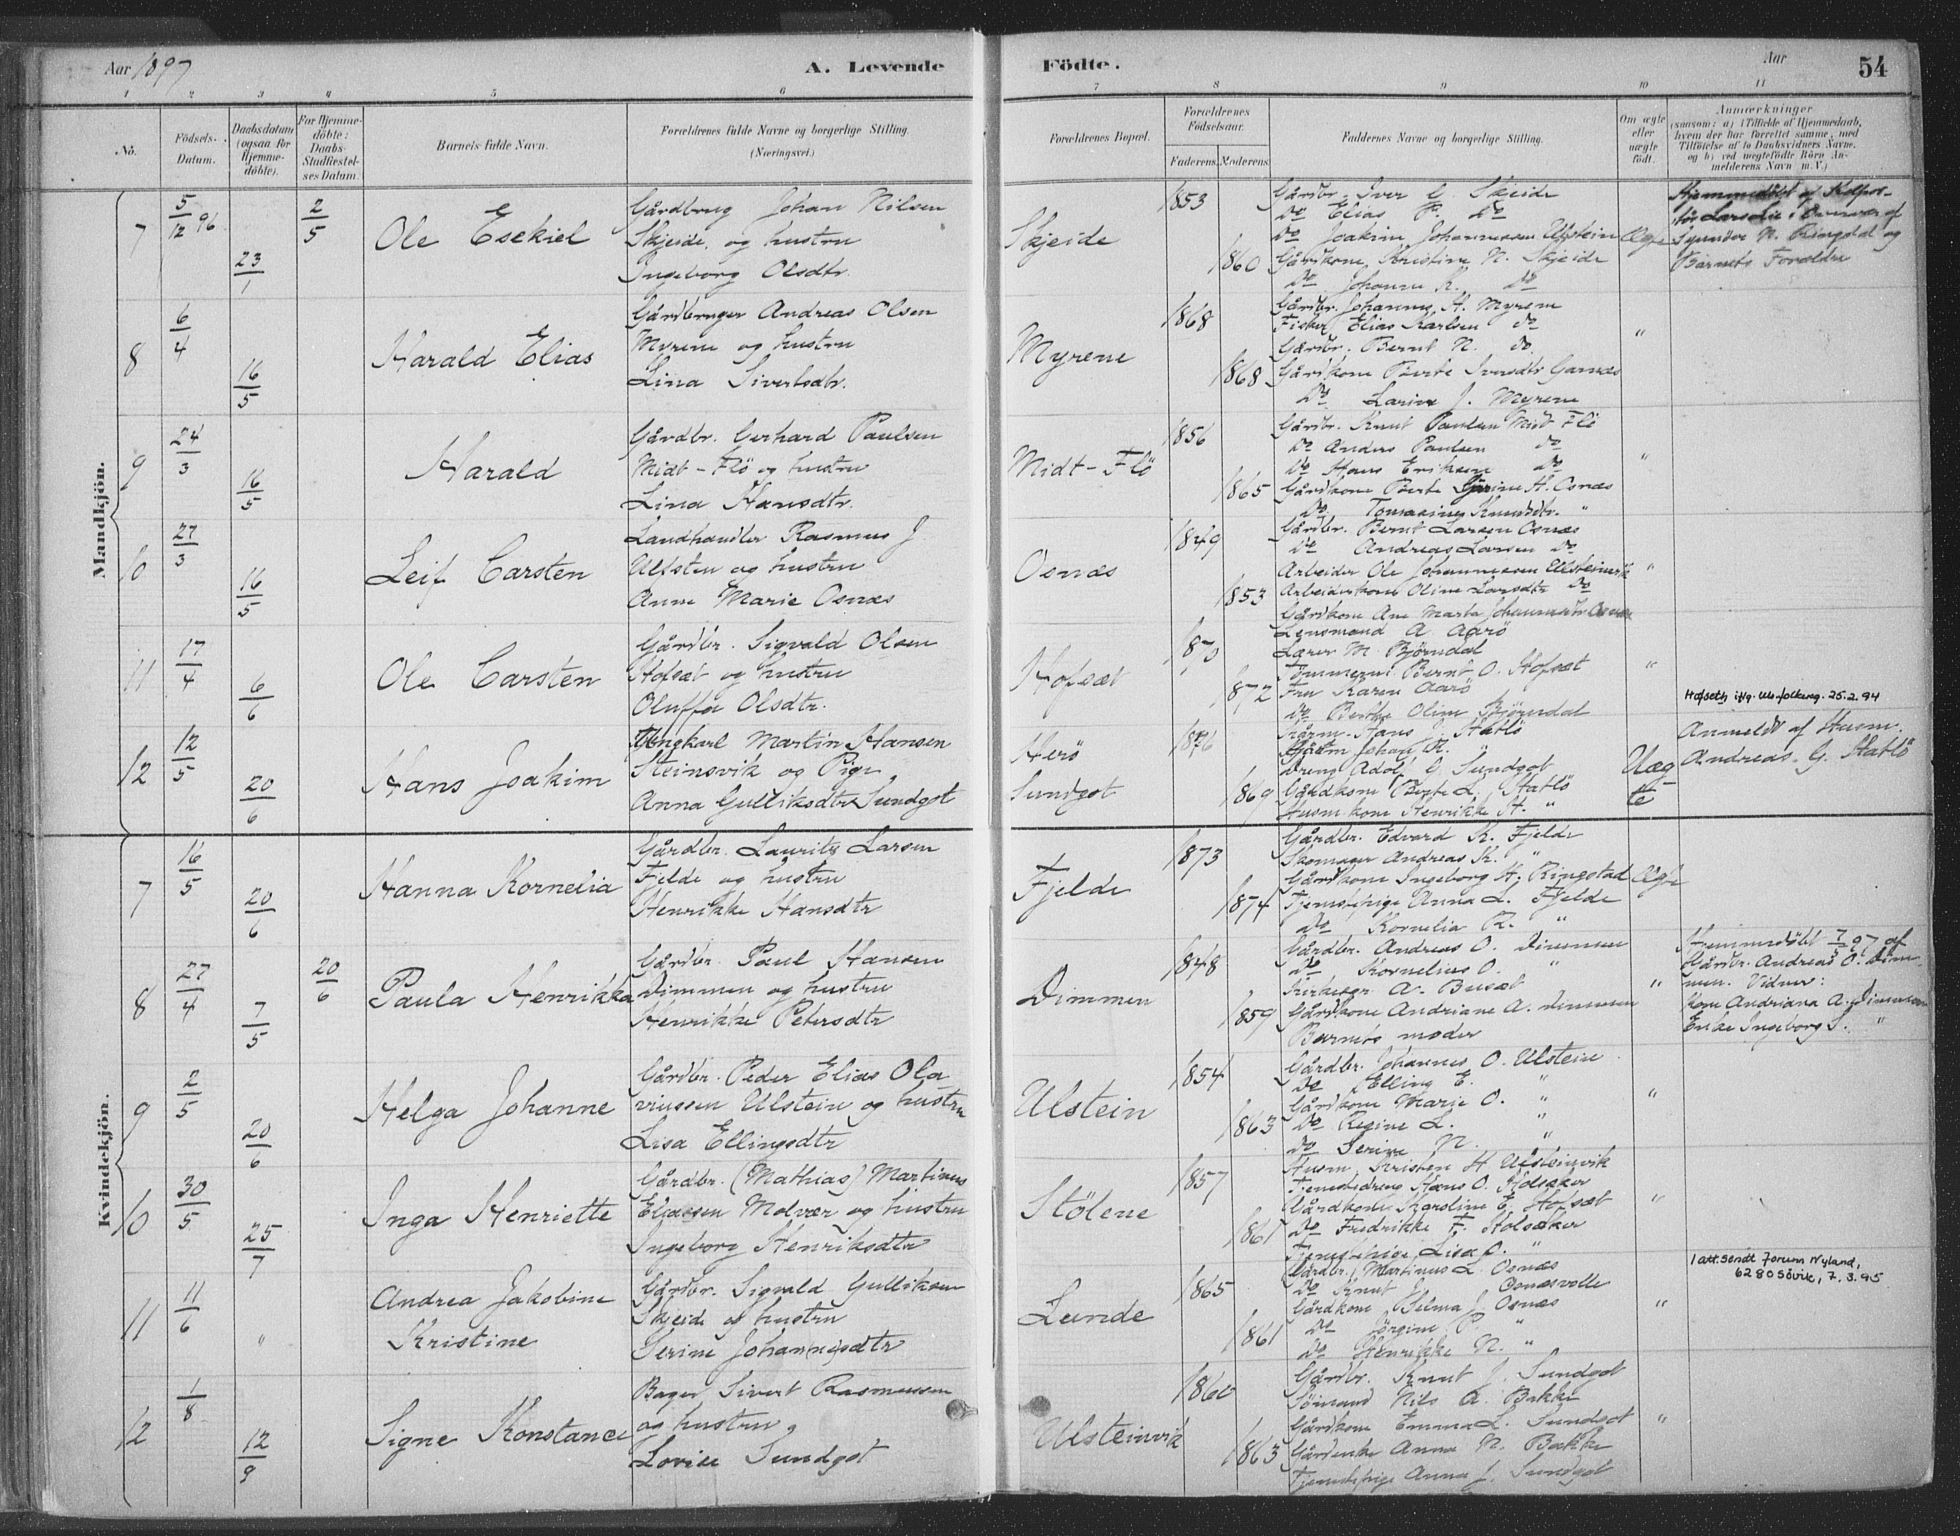 Aar 1897
A. Levende
Födte.
Aar
54
1 2 3 4 5 6 7 8 9 10 11
No.
Födsels-
Datum.
Daabsdatum
(ogsaa for
Hjemme-
döbte).
For Hjemme-
döbte:
Daabs-
Stadfæstel-
ses Datum.
Barnets fulde Navn.
Forældrenes fulde Navne og borgerlige Stilling.
(Næringsvei.)
Forældrenes Bopæl.
Forældrenes
Födselsaar.
Faderens. Moderens.
Faddernes Navne og borgerlige Stilling.
Om ægte
eller
uægte
födt.
Anmærkninger
(saasom: a) i Tilfælde af Hjemmedaab,
hvem der har forrettet samme, med
Tilföielse af to Daabsvidners Navne,
og b) ved uægtefödte Börn An-
melderens Navn m. V.)
Mandkjön.
7
5/12 96
23/1
2/5
Ole Esekiel
Gårdbrug Johan Nilsen
Skjeide, og hustru
Ingeborg Olsdtr.
Skjeide
1853
1860
Gårdbr. Iver E. Skeide
do Elias P. do
do Joakim Johannessen Ulstein
Gårdkone Kristine N. Skjeide
do Johanne K. do
Ægte
Hjemmedöbt af Kolpor-
tör Lars Lie i Overvær af
N. Ringstad og
Barnets Foreldre
8
6/4
16/5
Harald Elias
Gårdbruger Andreas Olsen
Myrene og hustru
Lina Sivertsdtr.
Myrene
1868
1868
Gårdbr. Johannes H. Myrene
Fisker Elias Karlsen do
Gårdbr. Bernt N. do
Gårdkone Berte Iversdtr Garnæs
Do Larine J. Myrene
"
9
24/3
16/5
Harald
Gårdbr. Gerhard Paulsen
Midt-Flö og hustru
Lina Hansdtr.
Midt-Flö
1856
1865
Gårdbr. Knut Paulsen Midt Flö
Do Anders Paulsen do
Do Hans Eriksen do
Gårdkone Berte H. Osnæs
Do Tomasine Knudsdtr. "
"
10
27/3
16/5
Leif Carsten
Landhandler Rasmus J.
Ulfsten og hustru
Anne Marie Osnæs
Osnæs
1849
1853
Gårdbr. Bernt Larsen Osnæs
do Andreas Larsen do
Arbeider Ole Johannessen Ulsteinvik
Arbeiderkone Oline Larsdtr do
Gårdkone Ane Marta Johannesdtr Osnæs
"
11
17/4
6/6
Ole Carsten
Gårdbr. Sigvald Olsen
Hofsæt og hustru
Oluffa Olsdtr.
Hofsæt
1870
1872
Lensmand A. Aarö
Lærer M. Björndal
Tömmerm. Bernt O. Hofsæt
Fru Karen Aarö
do Berthe Oline Björndal
"
Hofseth iflg. Ms. folkereg. 25.2.94
12
12/5
20/6
Hans Joakim
Ungkarl Martin Hansen
Steinsvik og Pige
Anna Gulliksdtr Sundgot
Herö
Sundgot
1876
1869
Hans Hatlö
Johan R. "
Dreng Adolf E Sundgot
Gårdkone Berte L. Hatlö
Husm.kone Henrikke H. "
Uæg-
te
Anmeldt af Husm.
Andreas G. Hatlö
Kvindekjön.
7
16/5
20/6
Hanna Kornelia
Gårdbr. Laurits Larsen
Fjelde og hustru
Henrikke Hansdtr
Fjelde
1873
1874
Gårdbr. Edvard K. Fjelde
Skomager Andreas K. "
Gårdkone Ingeborg H. Ringstad
Tjenestpige Anna L. Fjelde
Do Kornelia R. "
Ægte
8
27/4
7/5
20/6
Paula Henrikka
Gårdbr. Paul Hansen
Dimmen og hustru
Henrikke Petersdtr
Dimmen
1848
1859
Gårdbr. Andreas O. Dimmen
do Kornelius O. "
Kirkesgr A. Busæt
Gårdkone Andriane A. Dimmen
Barnets moder
"
Hjemmedöbt 7/5 97 af
Gårdbr. Andreas O. Dim-
men. Vidner:
Kone Andriana A. Dimmen
Enke Ingeborg S. "
9
2/5
20/6
Helga Johanne
Gårdbr. Peder Elias Ola-
viussen Ulstein og hustru
Lisa Ellingsdtr
Ulstein
1854
1863
Gårdbr. Johannes O. Ulstein
do Elling E. "
Gårdkone Marie O. "
Do Regine L. "
do Serine N. "
"
10
30/5
25/7
Inga Henriette
Gårdbr. (Mathias) Martinus
Eliassen Molvær og hustru
Ingeborg Henriksdtr
Stölene
1857
1861
Husm. Kristen H Ulsteinvik
Tjenestedreng Hans O. Holsaker
Gårdkone Karoline E. Hofsæt
Do Fredrikke F. Holsaker
Tjenestpige Lisa O. "
"
11
11/6
"
Andrea Jakobine
Kristine
Gårdbr. Sigvald Gulliksen
Skjeide og hustru
Serine Johan(ne)sdtr
Lunde
1865
1861
Gårdbr. Martinus L. Osnæs
do Knut Osnæsvolle
Gårdkone Helma J. Osnæs
do Jörgine P. "
do Henrikke N. "
"
1 att. sendt Jorunn Nyland,
6280 Sövik, 7.3.95
12
1/8
12/9
Signe Konstance
Bager Sivert Rasmussen
og hustru
Lovise Sundgot
Ulsteinvik
1860
1863
Gårdbr. Knut J. Sundgot
Sömand Nils A. Bakke
Gårdkone Emma L. Sundgot
Gårdenke Anna N. Bakke
Tjenestepige Anna J. Sundgot
"